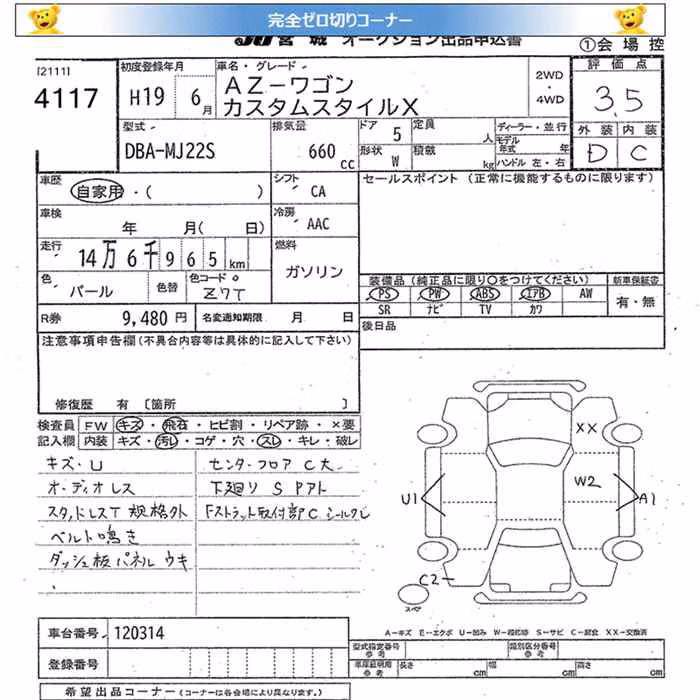 完全ゼロ切りコーナー
JU 宮城 オークション出品申込書
①会場控
[2111]
4117
初度登録年月
H19 6月
車名・グレード
AZ-ワゴン
カスタムスタイルX
2WD
・
4WD
評価点
3.5
外装 内装
D C
型式
DBA-MJ22S
排気量
660 cc
ドア 5
定員 人
形状 W
積載 kg
ディーラー・並行
モデル年式 年
ハンドル 左・右
車歴
自家用・( )
シフト CA
車検
年 月( 日)
冷房 AAC
走行
14万6千965km
燃料
ガソリン
色
パール
色替
色コード
Z7T
R券 9,480円
名変通知期限 月 日
セールスポイント (正常に機能するものに限ります)
装備品(純正品に限り○をつけてください)
新車保証書
PS PW ABS エアB AW
SR ナビ TV カワ
有・無
後日品
注意事項申告欄(不具合内容等は具体的に記入して下さい)
修復歴 有 [箇所 ]
検査員記入欄
FW キズ・飛石・ヒビ割・リペア跡・×要
内装 キズ・汚レ・コゲ・穴・スレ・キレ・破レ
キズ・U
オーディオレス
スタッドレスT 規格外
ベルト鳴き
ダッシュ板パネル ウキ
センターフロア C大
下廻り S Pアト
Fストラット取付部C シールクし
XX
W2
U1
A1
C2
スペア
A-キズ E-エクボ U-凹み W-補修跡 S-サビ C-腐食 XX-交換済
車台番号 120314
登録番号
型式指定番号 参考
類別区分番号 参考
車庫証明用 参考
長さ cm
幅 cm
高さ cm
希望出品コーナー(コーナーは各会場により異なります。)